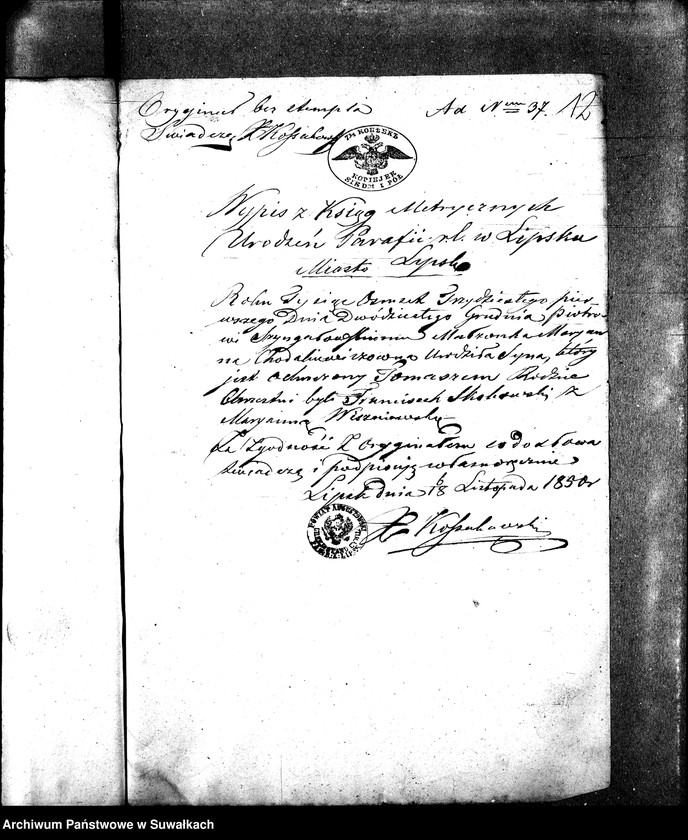 Oryginał bez stempla
Świadczę X Kossakowski
Ad Nrum 37. 12
7½ KOPIEJEK
KOPIEJEK
SIEDM I PÓŁ
Wypis z Ksiąg Metrycznych
Urodzeń Parafii r.l. w Lipsku
Miasto Lipsk
Roku Tysiąc Osmset Trzydziestego pier-
wszego Dnia Dwódziestego Grudnia Piotro-
wi Małżonka Maryan-
na Urodziła Syna, który
jest ochrzczony Tomaszem Rodzice
Chrzestni byli Franciszek Skokowski z
Maryanną Wiszniewską
Za Zgodność z Oryginałem co do słowa
świadczę i podpisuję własnoręcznie
Lipsk dnia 6/18 Listopada 1850r
X Kossakowski
POWIAT AUGUSTOWSKI
Archiwum Państwowe w Suwałkach